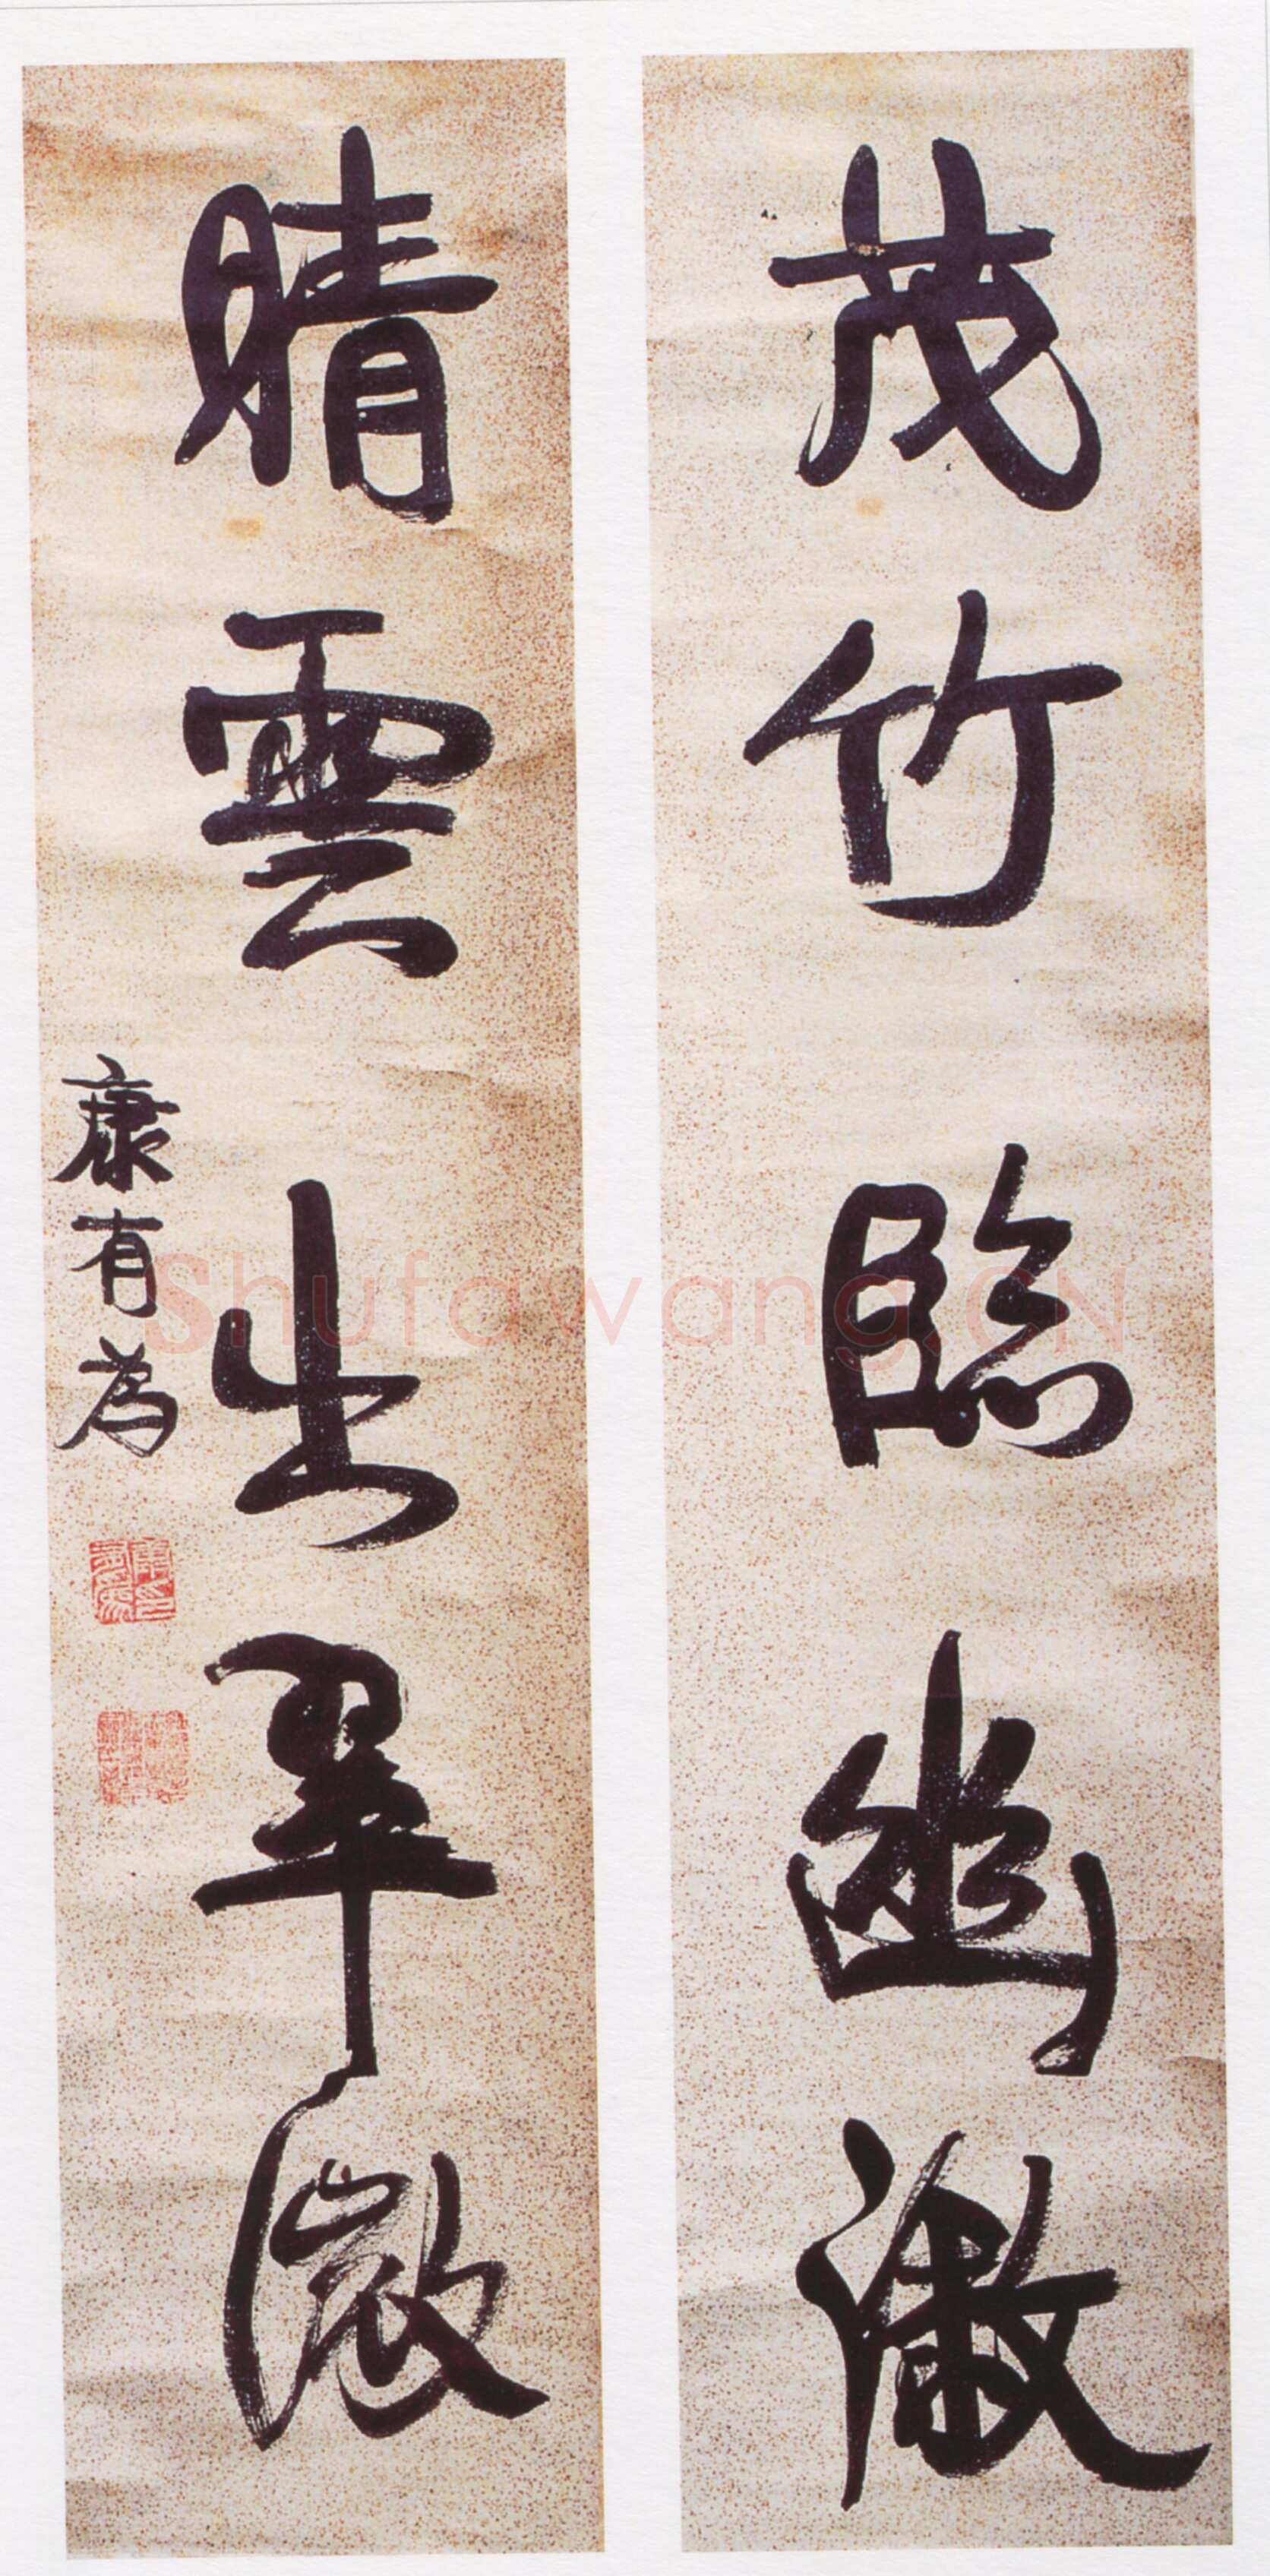 茂竹臨幽澂
晴雲出翠微
康有為
Shufawang.CN